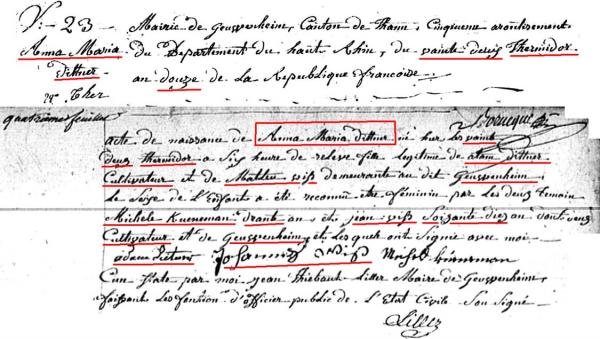 V: - 23 -
Anna Maria
Dittner
22 Ther
Mairie de Geussenheim, Canton de Thann, Cinqueme arontisement
du Departement du haut Rhin, du vainte deuis Thermidor
an douze de La Republique francoise
quatriemefeuillet
acte de naissance de Anna Maria dittner né her Le vaint
deus thermidor a Sis heure de releve fille Legitime de adam dittner
Cultivateur et de Madlen wiss demeurante au dit Geussenheim,
le Seixe de L'Enfant a été reconnu être féminin par les deux temain
Michele Kueneman trante an, et jean wiss Soisante dis an tout deus
Cultivateur et de Geussenheim, et Lesquels ont Signée avec moi
Johannes Wiss Michel Kieneman
Con state par moi jean Thiebaut Liller Maire de Geussenheim,
faissant les fonction d'officier public de L'Etat Civile Sousigné
Liller